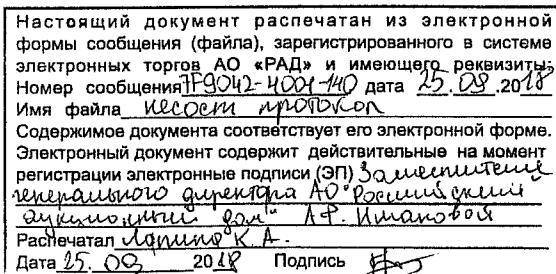 Настоящий документ распечатан из электронной
формы сообщения (файла), зарегистрированного в системе
электронных торгов АО «РАД» и имеющего реквизиты:
Номер сообщения 7F9042-4001-140 дата 25.09.2018
Имя файла несост протокол
Содержимое документа соответствует его электронной форме.
Электронный документ содержит действительные на момент
регистрации электронные подписи (ЭП) Заместителя
генерального директора АО "Российский
аукционный дом" А.Ф. Имаковой
Распечатал Лапина К.А.
Дата 25. 09 2018 Подпись